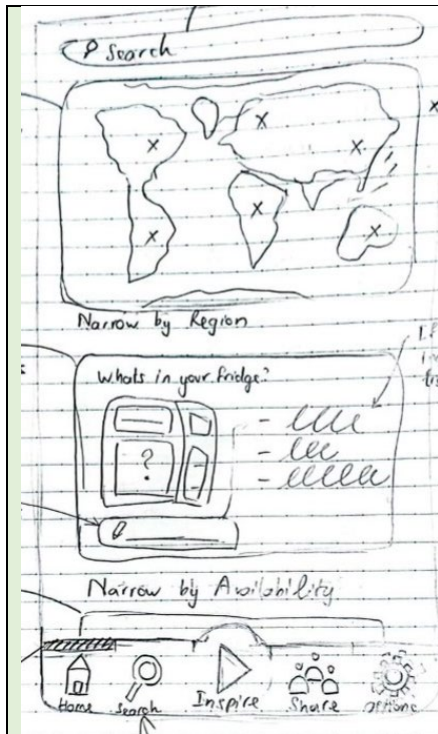 Search
Narrow by Region
Whats in your fridge?
?
Narrow by Availability
Home Search Inspire Share options